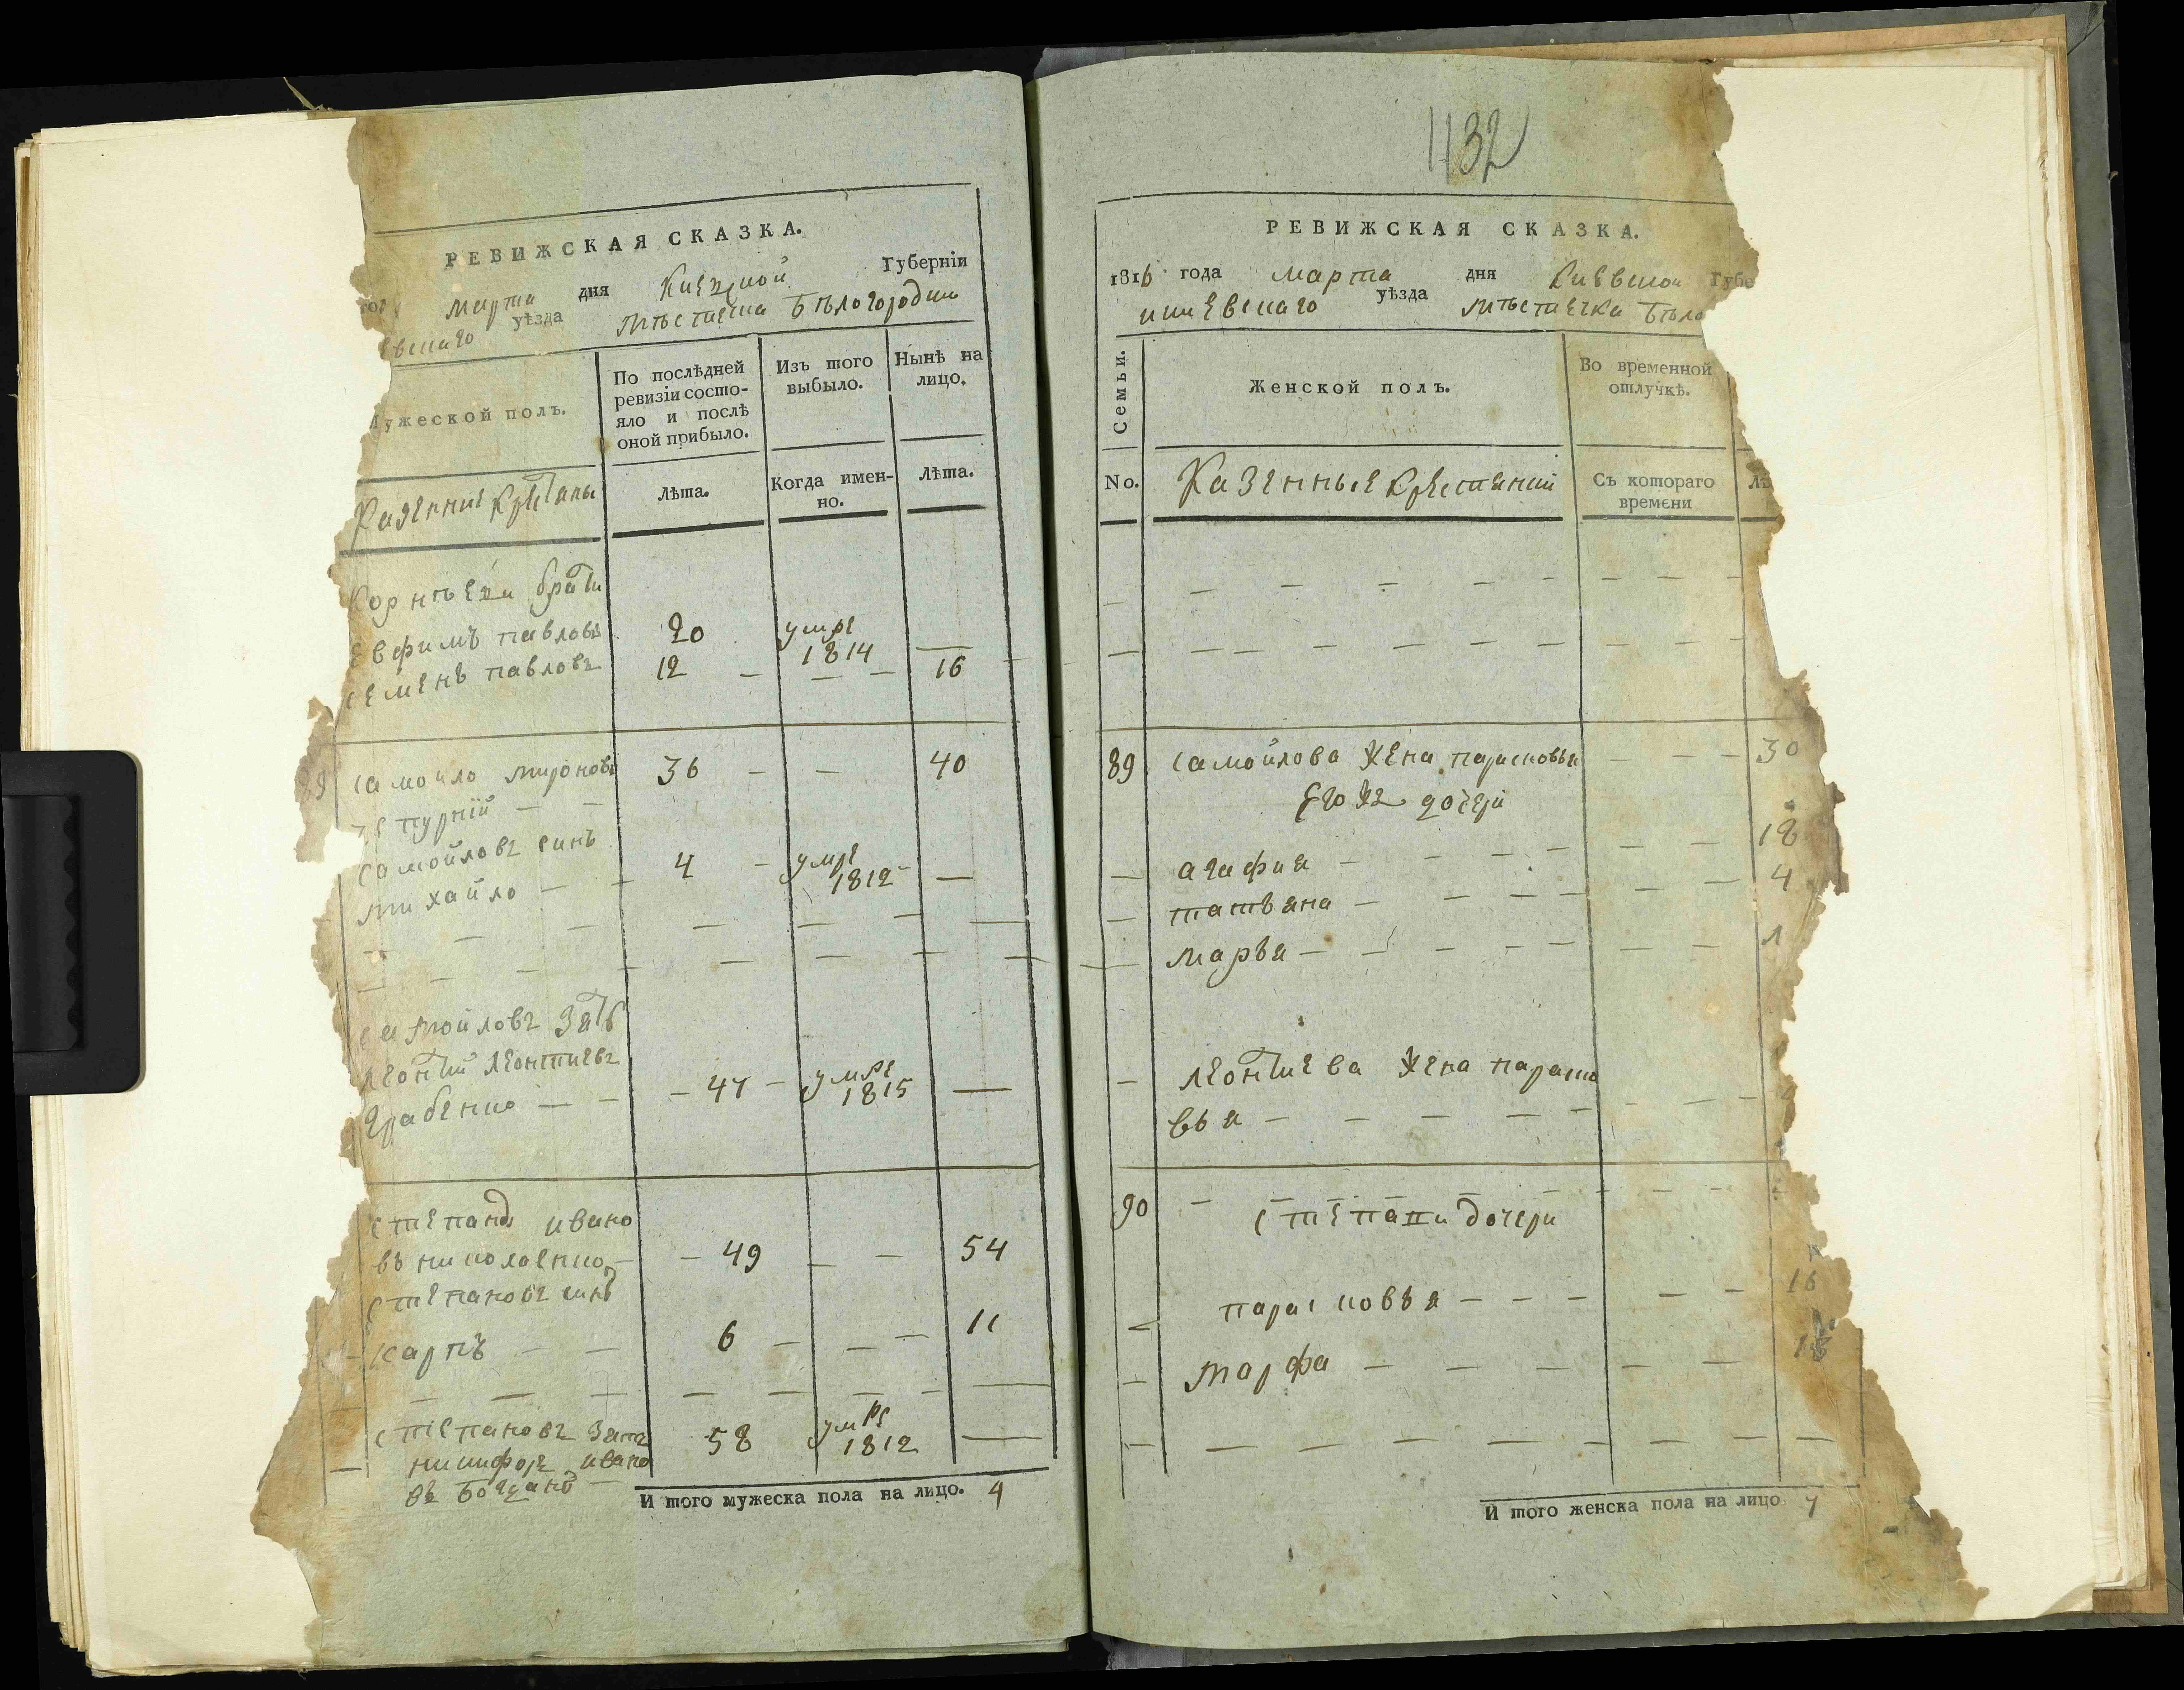 РЕВИЖСКАЯ СКАЗКА.
марта дня Киевской Губерніи
евскаго уѣзда мѣстечка Бѣлогородки
ужеской полъ.
По послѣдней ревизіи состо-
яло и послѣ
оной прибыло.
Изъ того
выбыло.
Нынѣ на
лицо.
Казенные Крестяны
Лѣта.
Когда имен-
но.
Лѣта.
браты
Евфимъ павловъ 20 умре
1814 —
семенъ павловъ 12 — — — 16
89 самоило мироновъ 36 — — 40
самойловъ синъ
михайло — — 4 — умре
1812 —
самойловъ зять
леонтий леонтиевъ
грабенко — — — 47 — умре
1815 —
степанъ ивано
въ николаенко — — 49 — — 54
степановъ синъ
карпъ — — 6 — — — 11
степановъ зять 58 умре
1812 —
никифоръ ивано
въ Богданъ —
И того мужеска пола на лицо. 4
1132
РЕВИЖСКАЯ СКАЗКА.
1816 года марта дня Киевской Губе
киевскаго уѣзда мѣстечка Бѣло
Семьи.
Женской полъ.
Во временной
отлучкѣ.
No.
Казенные Крестянки
Съ котораго
времени
Лѣ
89 самойлова жена парасковья — — — 30
Егожъ дочери
— агафия — — — — — — 18
— татьяна — — — — — — 4
— марья — — — — — — — 1
— леонтиева жена параско
вья — — — — — — — —
90 — — — — — — — — —
степана дочери
— парасковья — — — — — 16
— марфа — — — — — —
— — — — — — — — —
И того женска пола на лицо 7